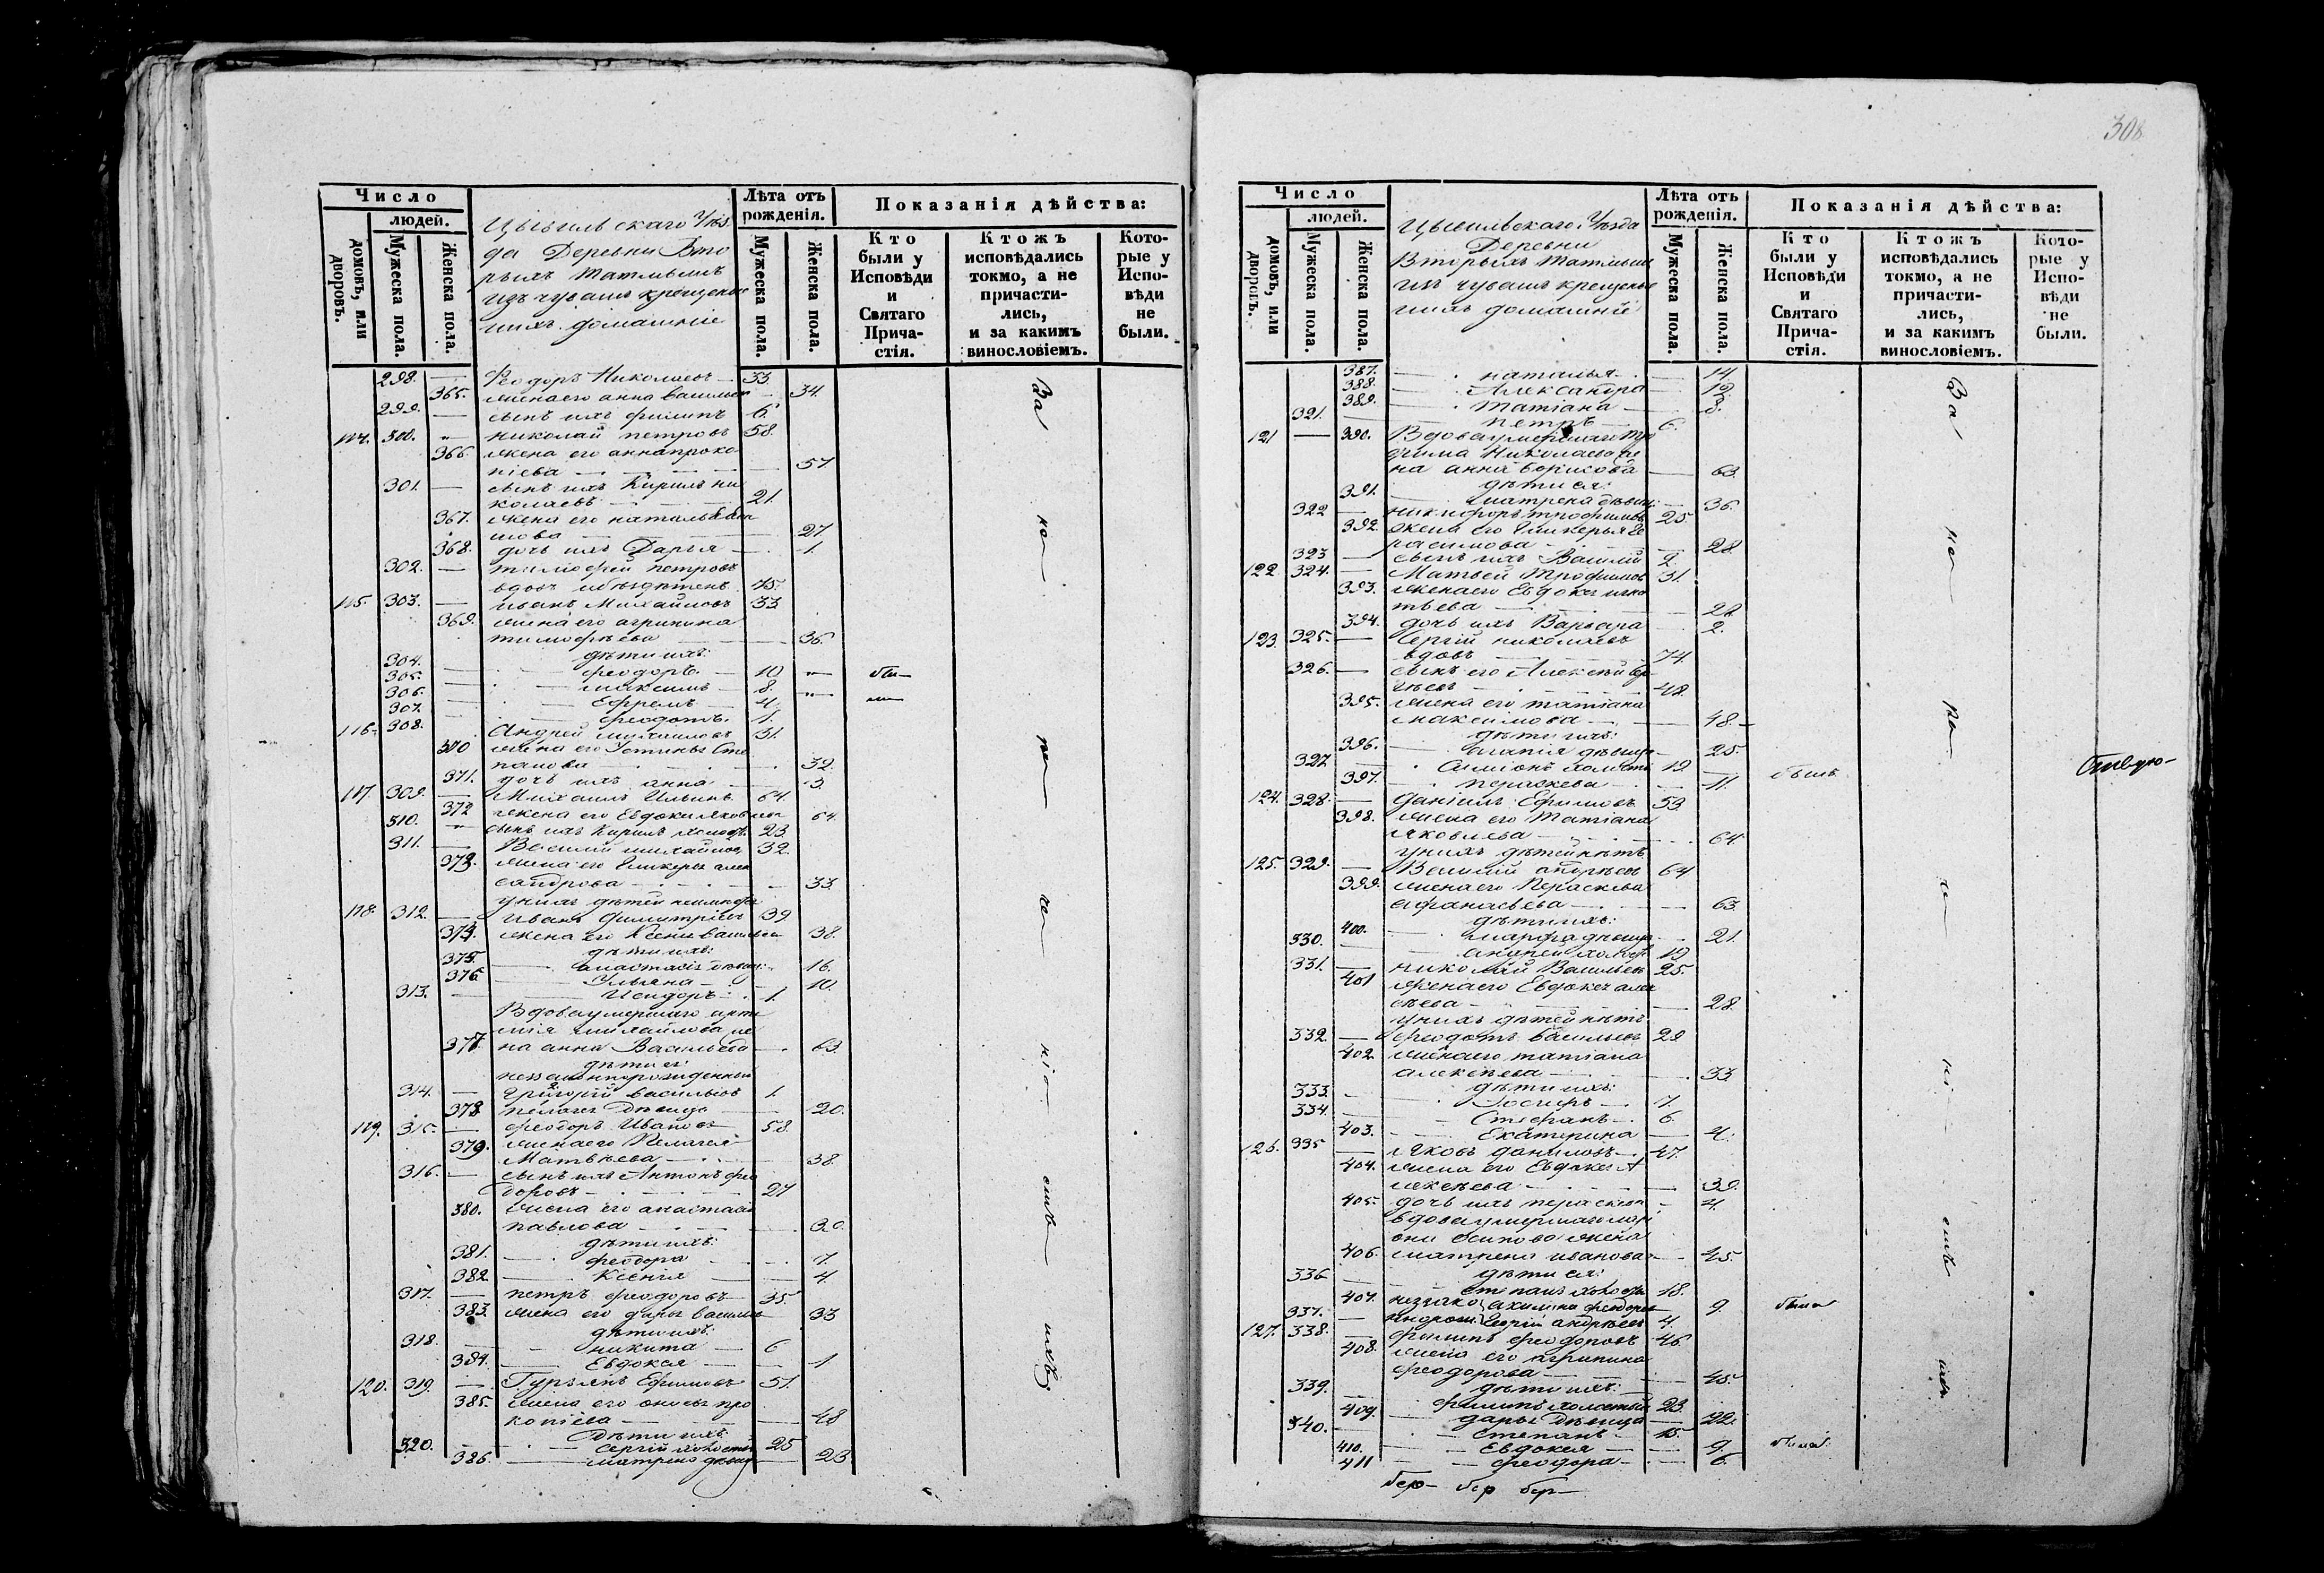 Число
людей.
домовъ, или дворовъ.
Мужеска пола.
Женска пола.
Цывильскаго Уѣз
да Деревни Вто
рыхъ
изъ чувашъ крещеные
ихъ домашніе
Лѣта отъ рожденія.
Мужеска пола.
Женска пола.
Показанія дѣйства:
Кто были у Исповѣди и Святаго Прича-стія.
Ктожъ исповѣдались токмо, а не причасти-лись, и за какимъ винословіемъ.
Кото-рые у Испо-вѣди не были.
298. — Ѳеодоръ Николаевъ — 33.
365. жена его анна василье — 34.
299. — сынъ ихъ филипъ — 6.
114. 300. — николай петровъ 58.
366. жена его анна проко
піева — 57
301. — сынъ ихъ Кирилъ ни
колаевъ — 21.
367. жена его наталья
27
368. дочь ихъ Дарья — 1.
302. — тимофей петровъ
вдовъ 45.
115. 303. — иванъ Михайловъ 33
369. жена его агрипина
тимофѣева — 36.
дѣти ихъ:
304.
305. — феодоръ — 10
306. — максимъ — 8.
307. — Ефремъ — 4.
феодотъ. 1.
116. 308. Андрей михаиловъ 31.
370 жена его Устинья Сте
панова — 32.
371. дочь ихъ анна — 3.
117. 309. — Михаилъ Ильинъ 64.
372 жена его Евдокия Яковлева 64.
310. сынъ ихъ Кирилъ холост. 23.
311. — Василий михайловъ 32.
373. жена его Гликерья алек
сандрова — 33.
у нихъ дѣтей
118. 312. — Иванъ Димитріевъ 39.
374. жена его Ксенья Васильева 38.
дѣти ихъ:
375. — анастасія дѣвица 16.
376 — Ульяна — 10.
313. — Исидоръ — 1.
Вдова умершаго арте
мія михайлова же
377. на анна Васильева — 63.
дѣти ея:
незаконнорожденный
314. — Григорій васильевъ 1.
378. пелагея Дѣвица — 20.
119. 315. — феодоръ Ивановъ 58.
379. жена его Пелагея
Матвѣева — 38.
316. — сынъ ихъ Антонъ фео
доровъ — 27
380. жена его анастасія
павлова — 30.
дѣти ихъ:
381. — феодора — 7.
382. — Ксенія — 4.
317. — петръ феодоровъ — 35.
383. жена его дарья васильева 33
дѣти ихъ:
318. — никита — 6
384. — Евдокея — 1
120. 319. — Гурьянъ Ефимовъ 51.
385. жена его про
копіева — 48
Дѣти ихъ:
320. — сергій холостъ 25
386. — матрена дѣвица 23
За не ра че ні емъ ихъ
308
Число
людей.
домовъ, или дворовъ.
Мужеска пола.
Женска пола.
Цывильскаго Уѣзда
Деревни
Вторыхъ
изъ чувашъ крещеные
ихъ домашній
Лѣта отъ рожденія.
Мужеска пола.
Женска пола.
Показанія дѣйства:
Кто были у Исповѣди и Святаго Прича-стія.
Ктожъ исповѣдались токмо, а не причасти-лись, и за какимъ винословіемъ.
Кото-рые у Испо-вѣди не были.
387. — наталья — 14.
388. — Александра — 12.
389. — татіана — 3.
321. — петръ — 6.
121 — 390. Вдова умершаго тро
фима Николаева же
на анна Борисова — 63.
дѣти ея:
391. — матрена дѣвица 36.
322 — никифоръ трофимовъ 25
392. жена его Гликерья Ге
расимова — 28.
323 — сынъ ихъ Василий 2.
122. 324. — Матвей Трофимовъ 31.
393. жена его Евдокея игна
тьева — 28
394. дочь ихъ Варвара — 2.
123. 325. — Сергій николаевъ
вдовъ — 74.
326. — сынъ его Алексѣй Сер
гѣевъ — 48.
395. жена его татіана
максимова — 48.
дѣти ихъ:
396. — дѣвица — 25.
327 — симіонъ холостъ 19.
397. — перасковья — 11. былъ
124. 328. — Даніилъ Ефимовъ 53
398. жена его Татіана
яковлева — 64.
у нихъ дѣтей нѣтъ
125. 329. — Василій андрѣевъ 64
399. жена его Параскева
афанасьева — 63.
дѣти ихъ:
400. — марфа дѣвица — 21.
330. — андрей холост 19
331. — николай Васильевъ 25.
401 жена его Евдокея алек
сѣева — 28.
у нихъ дѣтей нѣтъ
332. — феодотъ васильевъ 29
402 жена его татіана
алексѣева — 33.
дѣти ихъ:
333. — Іосифъ — 7.
334. — Стефанъ — 6.
403. — Екатерина — 4.
126. 335 — Яковъ даниловъ — 47.
404. жена его Евдокея А
лексѣева — 39.
405. дочь ихъ перасковья — 4.
вдова умершаго
осипова жена
406. матрена иванова — 45.
дѣти ея:
336 — степанъ холостъ 18.
407. незако акилина феодоро 9. была
337. — Сергій андрѣевъ 4.
127. 338. — филипъ феодоровъ 46.
408. жена его агрипина
феодорова — 45.
дѣти ихъ:
339. — филипъ холостый 23.
409. — дарья Дѣвица — 22.
340. — Степанъ — 15
410. — Евдокея — 9. была
411 — феодора — 6.
За не ра че ні емъ ихъ